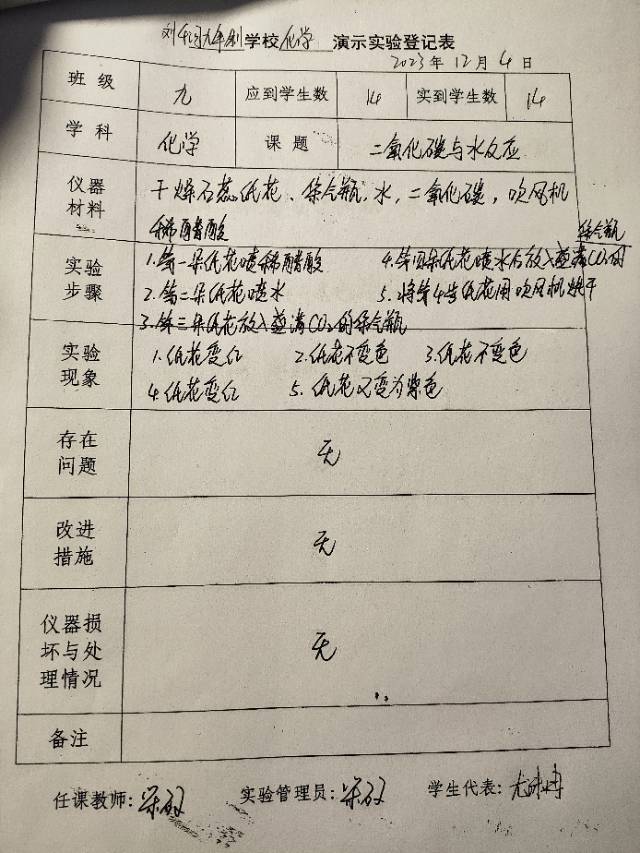 九年制学校化学演示实验登记表
2023年12月4日
班级 九 应到学生数 14 实到学生数 14
学科 化学 课题 二氧化碳与水反应
仪器材料 干燥石蕊纸花、集气瓶,水,二氧化碳,吹风机
稀醋酸
实验步骤 1.第一朵纸花喷稀醋酸
2.第二朵纸花喷水
3.第三朵纸花放入盛满CO2的集气瓶
4.第四朵纸花喷水后放入盛满CO2的
集气瓶
5.将第4朵纸花用吹风机烘干
实验现象 1.纸花变红 2.纸花不变色 3.纸花不变色
4.纸花变红 5.纸花又变为紫色
存在问题 无
改进措施 无
仪器损坏与处理情况 无
备注
任课教师: 实验管理员: 学生代表: